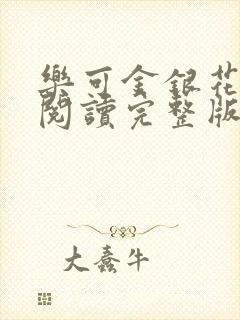 樂可金銀花
閱讀完整版
大蠢牛